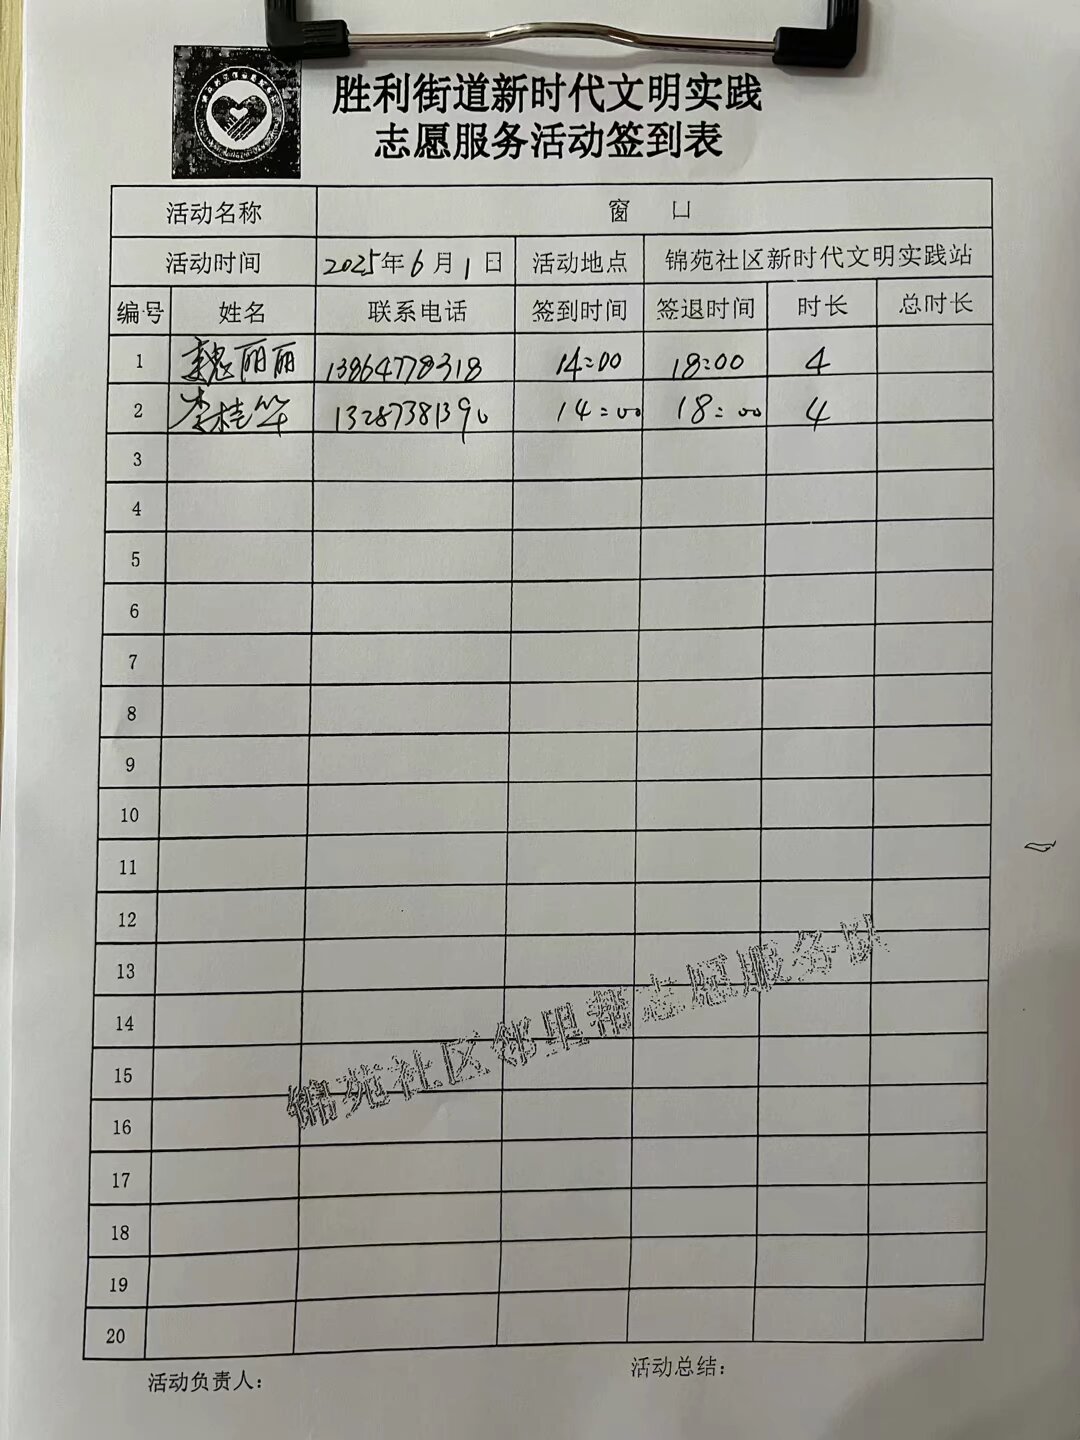 胜利街道新时代文明实践
志愿服务活动签到表
活动名称 窗 口
活动时间 2025年6月1日 活动地点 锦苑社区新时代文明实践站
编号 姓名 联系电话 签到时间 签退时间 时长 总时长
1 魏丽丽 13864778318 14:00 18:00 4
2 李桂华 13287381390 14:00 18:00 4
3
4
5
6
7
8
9
10
11
12
13
14
15
16
17
18
19
20
锦苑社区邻里帮志愿服务队
活动负责人： 活动总结：